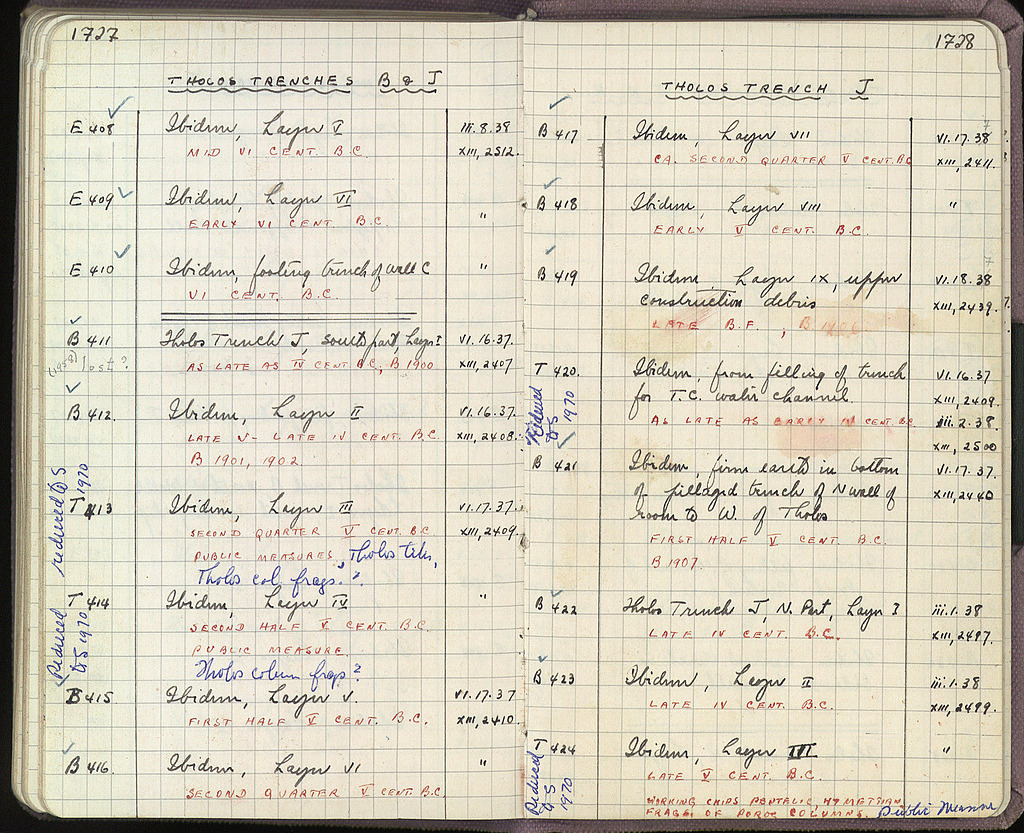 1727
THOLOS TRENCHES B & J
E 408 Ibidem, Layer V iii.8.38
MID VI CENT. B.C. XIII, 2512.
E 409 Ibidem, Layer VI "
EARLY VI CENT. B.C.
E 410 Ibidem, footing trench of wall C "
VI CENT. B.C.
B 411 Tholos Trench J, south part, Layer I VI.16.37.
(1958) lost? AS LATE AS IV CENT. B.C., B 1900 XIII, 2407
B 412. Ibidem, Layer II VI.16.37.
LATE V - LATE IV CENT. B.C. XIII, 2408.
B 1901, 1902.
reduced to S 1970
T 413 Ibidem, Layer III VI.17.37.
SECOND QUARTER V CENT. B.C. XIII, 2409.
PUBLIC MEASURES, Tholos tiles,
Tholos col. frags.?
T 414 Ibidem, Layer IV "
SECOND HALF V CENT. B.C.
PUBLIC MEASURE.
Tholos column frags?
Reduced to S 1970
B 415 Ibidem, Layer V. VI.17.37
FIRST HALF V CENT. B.C. XIII, 2410.
B 416. Ibidem, Layer VI "
SECOND QUARTER V CENT. B.C.
1728
THOLOS TRENCH J
B 417 Ibidem, Layer VII VI.17.38
CA. SECOND QUARTER V CENT. B.C. XIII, 2411.
B 418 Ibidem, Layer VIII "
EARLY V CENT. B.C.
B 419 Ibidem, Layer IX, upper VI.18.38
construction debris XIII, 2439.
LATE B.F., B 1906
T 420. Ibidem, from filling of trench VI.16.37
for T.C. water channel. XIII, 2409.
AS LATE AS EARLY IV CENT. B.C. iii.2.38.
XIII, 2500
Reduced to S 1970
B 421 Ibidem, firm earth in bottom VI.17.37.
of pillaged trench of N wall of XIII, 2440
room to W. of Tholos
FIRST HALF V CENT. B.C.
B 1907.
B 422 Tholos Trench J, N. Part, Layer I iii.1.38
LATE IV CENT. B.C. XIII, 2497.
B 423 Ibidem, Layer II iii.1.38
LATE IV CENT. B.C. XIII, 2499.
T 424 Ibidem, Layer III "
LATE V CENT. B.C.
Reduced to S 1970
WORKING CHIPS PENTELIC, HYMETTIAN,
FRAGS OF POROS COLUMNS. public measure